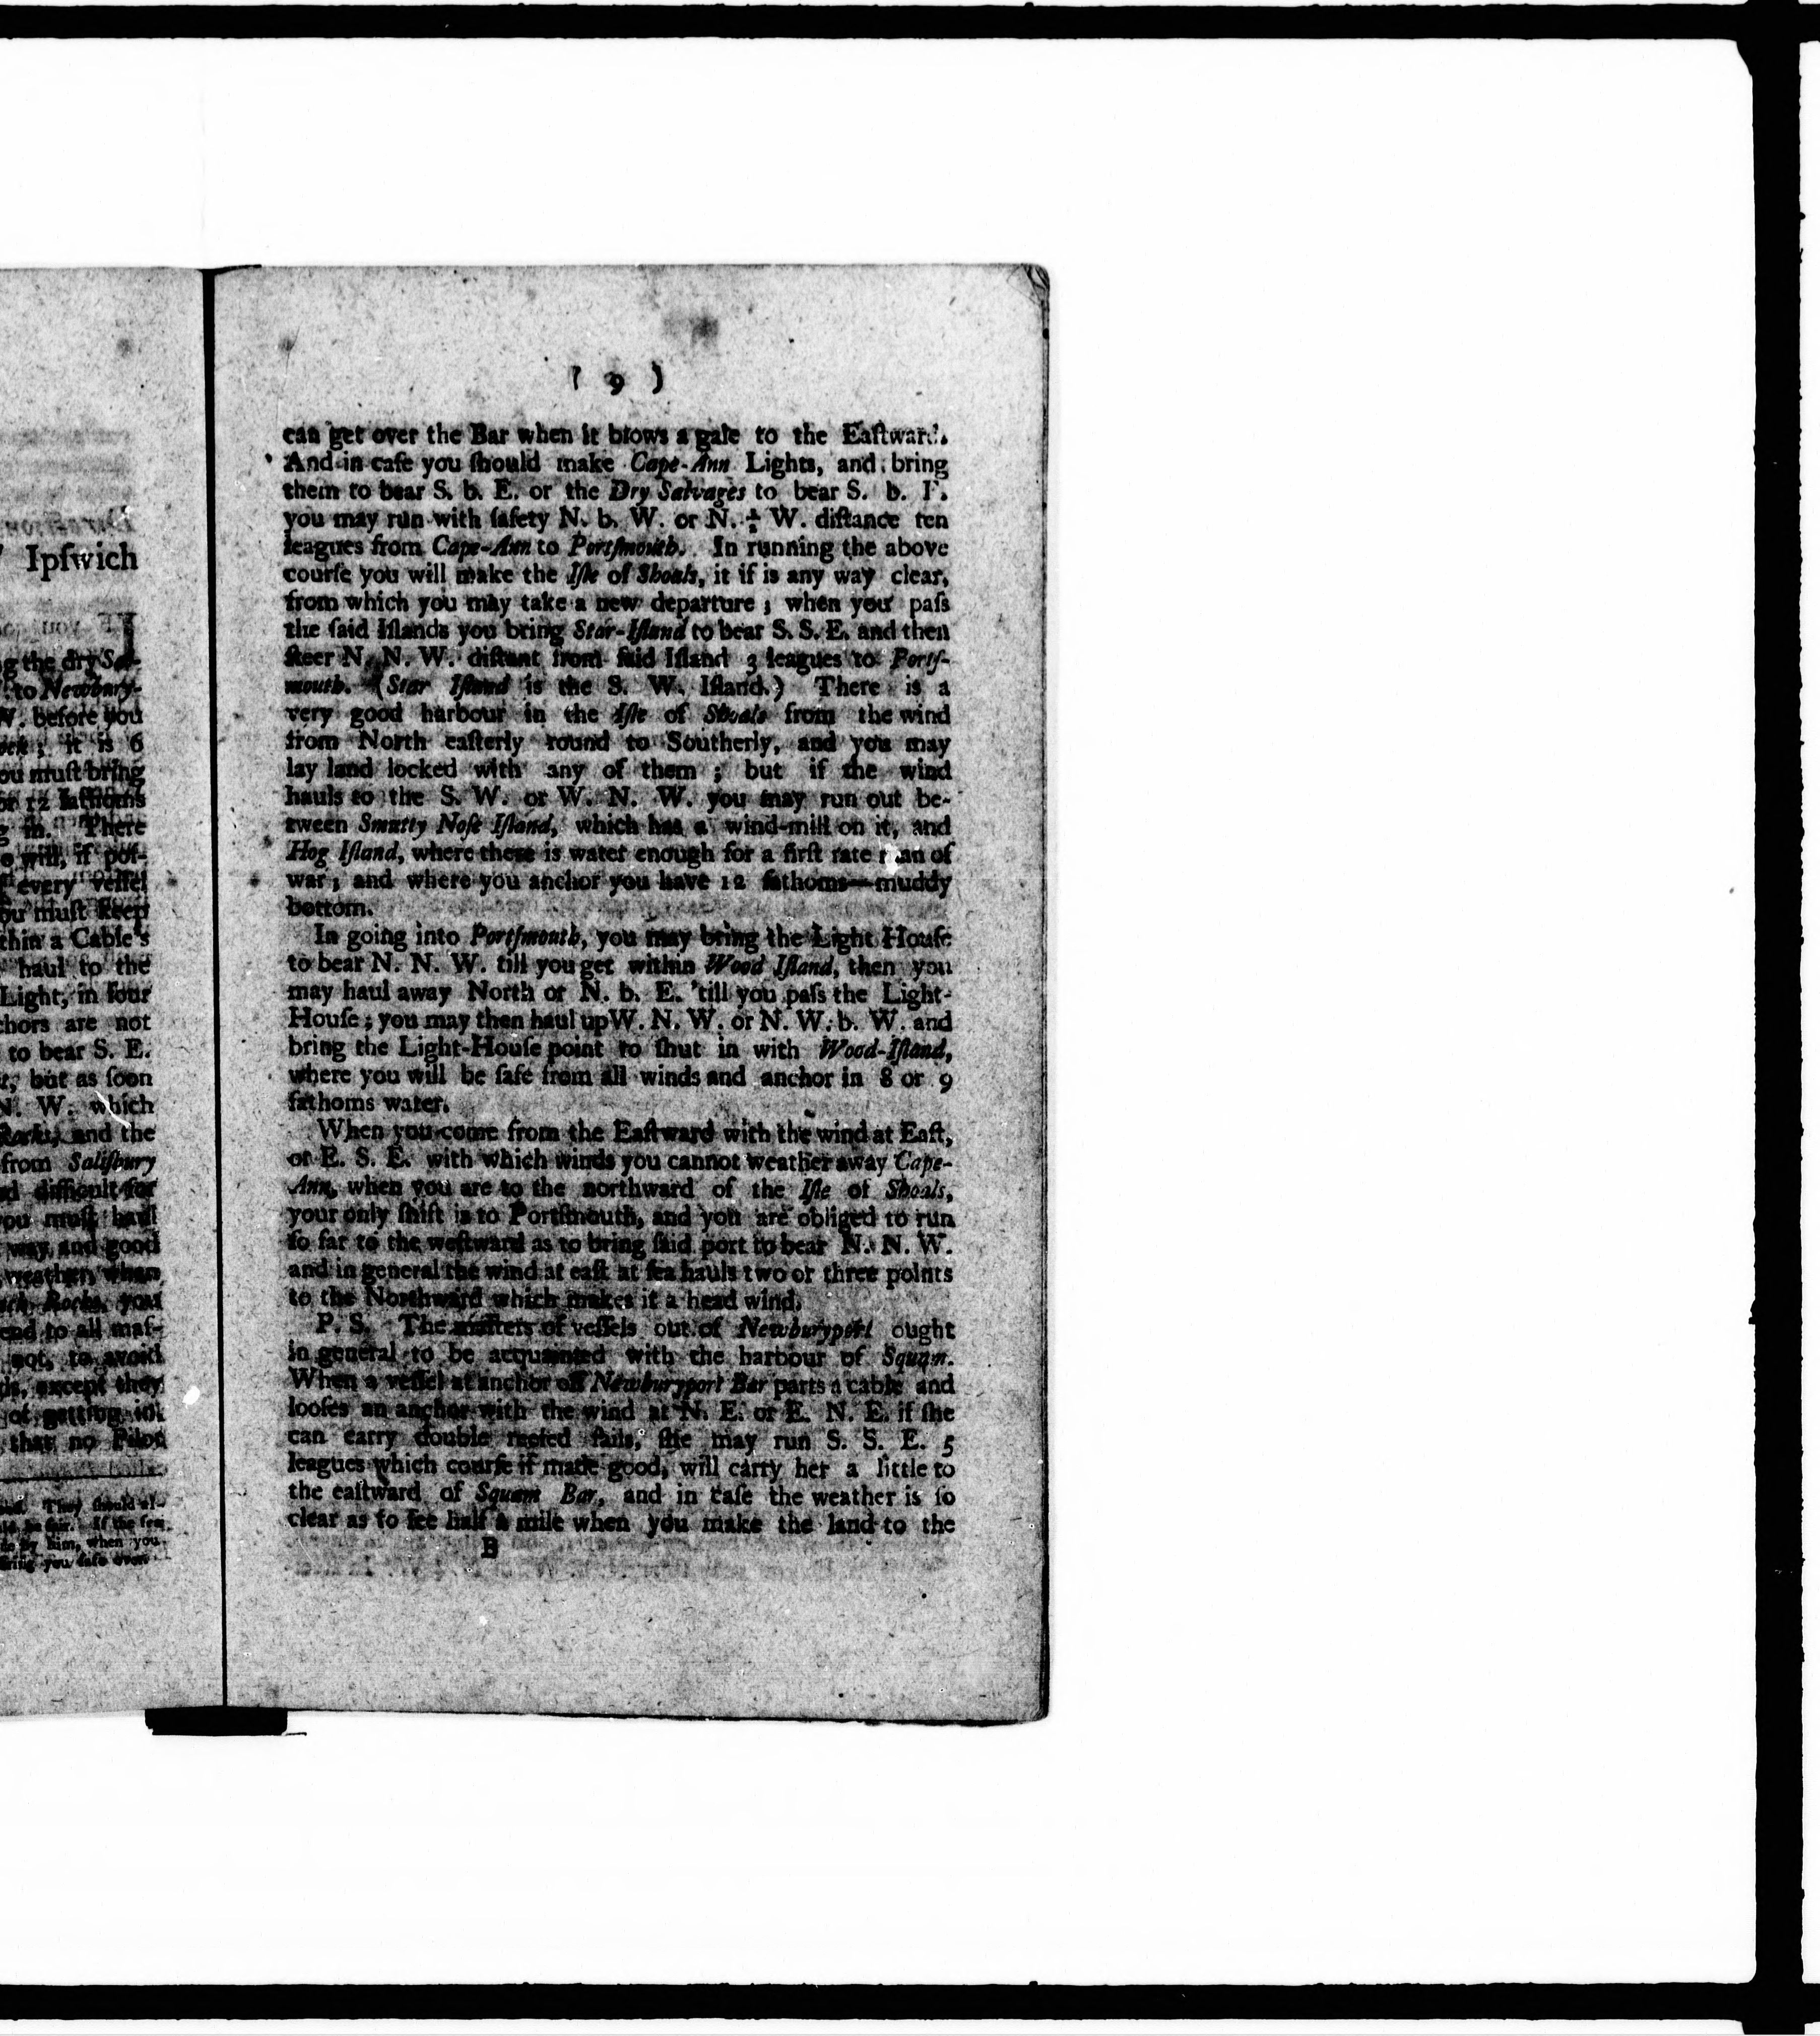 Ipſwich
g the dry Sal-
to Newbury-
W. before you
it is 6
ou muſt bring
or 12 fathoms
g in. There
e will, if poſ-
every veſſel
ou muſt keep
thin a Cable's
haul to the
Light, in four
chors are not
to bear S. E.
but as ſoon
N. W. which
Rocks) and the
from Saliſbury
d difficult for
you muſt haul
way, and good
weather, when
Rocks, you
end to all maſ-
not, to avoid
except they
of getting in
that no Pilot
They ſhould al-
If the ſea
by him, when you
bring you ſafe over
( 9 )
can get over the Bar when it blows a gale to the Eaſtward.
And in caſe you ſhould make Cape-Ann Lights, and bring
them to bear S. b. E. or the Dry Salvages to bear S. b. E.
you may run with ſafety N. b. W. or N. ½ W. diſtance ten
leagues from Cape-Ann to Portſmouth. In running the above
courſe you will make the Iſle of Shoals, it if is any way clear,
from which you may take a new departure; when you paſs
the ſaid Iſlands you bring Star-Iſland to bear S. S. E. and then
ſteer N. N. W. diſtant from ſaid Iſland 3 leagues to Portſ-
mouth. (Star Iſland is the S. W. Iſland.) There is a
very good harbour in the Iſle of Shoals from the wind
from North eaſterly round to Southerly, and you may
lay land locked with any of them; but if the wind
hauls to the S. W. or W. N. W. you may run out be-
tween Smutty Noſe Iſland, which has a wind-mill on it, and
Hog Iſland, where there is water enough for a firſt rate man of
war; and where you anchor you have 12 fathoms—muddy
bottom.
In going into Portſmouth, you may bring the Light Houſe
to bear N. N. W. till you get within Wood Iſland, then you
may haul away North or N. b. E. 'till you paſs the Light-
Houſe; you may then haul up W. N. W. or N. W. b. W. and
bring the Light-Houſe point to ſhut in with Wood-Iſland,
where you will be ſafe from all winds and anchor in 8 or 9
fathoms water.
When you come from the Eaſtward with the wind at Eaſt,
or E. S. E. with which winds you cannot weather away Cape-
Ann, when you are to the northward of the Iſle of Shoals,
your only ſhift is to Portſmouth, and you are obliged to run
ſo far to the weſtward as to bring ſaid port to bear N. N. W.
and in general the wind at eaſt at ſea hauls two or three points
to the Northward which makes it a head wind.
P. S. The maſters of veſſels out of Newburyport ought
in general to be acquainted with the harbour of Squam.
When a veſſel at anchor off Newburyport Bar parts a cable and
looſes an anchor with the wind at N. E. or E. N. E. if ſhe
can carry double reefed ſails, ſhe may run S. S. E. 5
leagues which courſe if made good, will carry her a little to
the eaſtward of Squam Bar, and in caſe the weather is ſo
clear as to ſee half a mile when you make the land to the
B